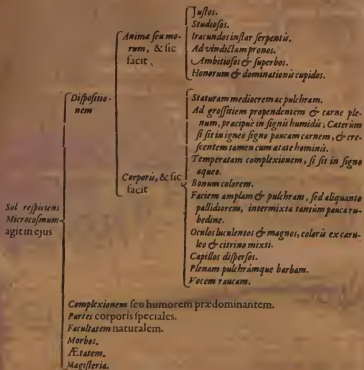 Justos.
Studiosos.
Animæ seu mo-
rum, & sic
facit
Iracundos instar serpentis.
Ad vindictam pronos.
Ambitiosos & superbos.
Honorum & dominationis cupidos.
Dispositio-
nem
Staturam mediocrem ac pulchram.
Ad grossitiem propendentem & carne ple-
num, præcipuè in signis humidis, Cæterùm
si sit in igneo signo paucam carnem, & cre-
scentem namen cum ætate hominis.
Temperatam complexionem, si sit in signo
aqueo.
Corporis, & sic
facit
Bonum colorem.
Faciem amplam & pulchram, sed aliquanto
pallidiorem, intermixta tantùm pauca ru-
bedine.
Oculos luculentos & magnos, coloris ex cæru-
leo & citrino mixti.
Capillos dispersos.
Plenam pulchrámque barbam.
Vocem raucam.
Sol respiciens
Microcosmum
agit in ejus
Complexionem seu humorem prædominantem.
Partes corporis speciales.
Facultatem naturalem.
Morbos.
Ætatem.
Magisteria.